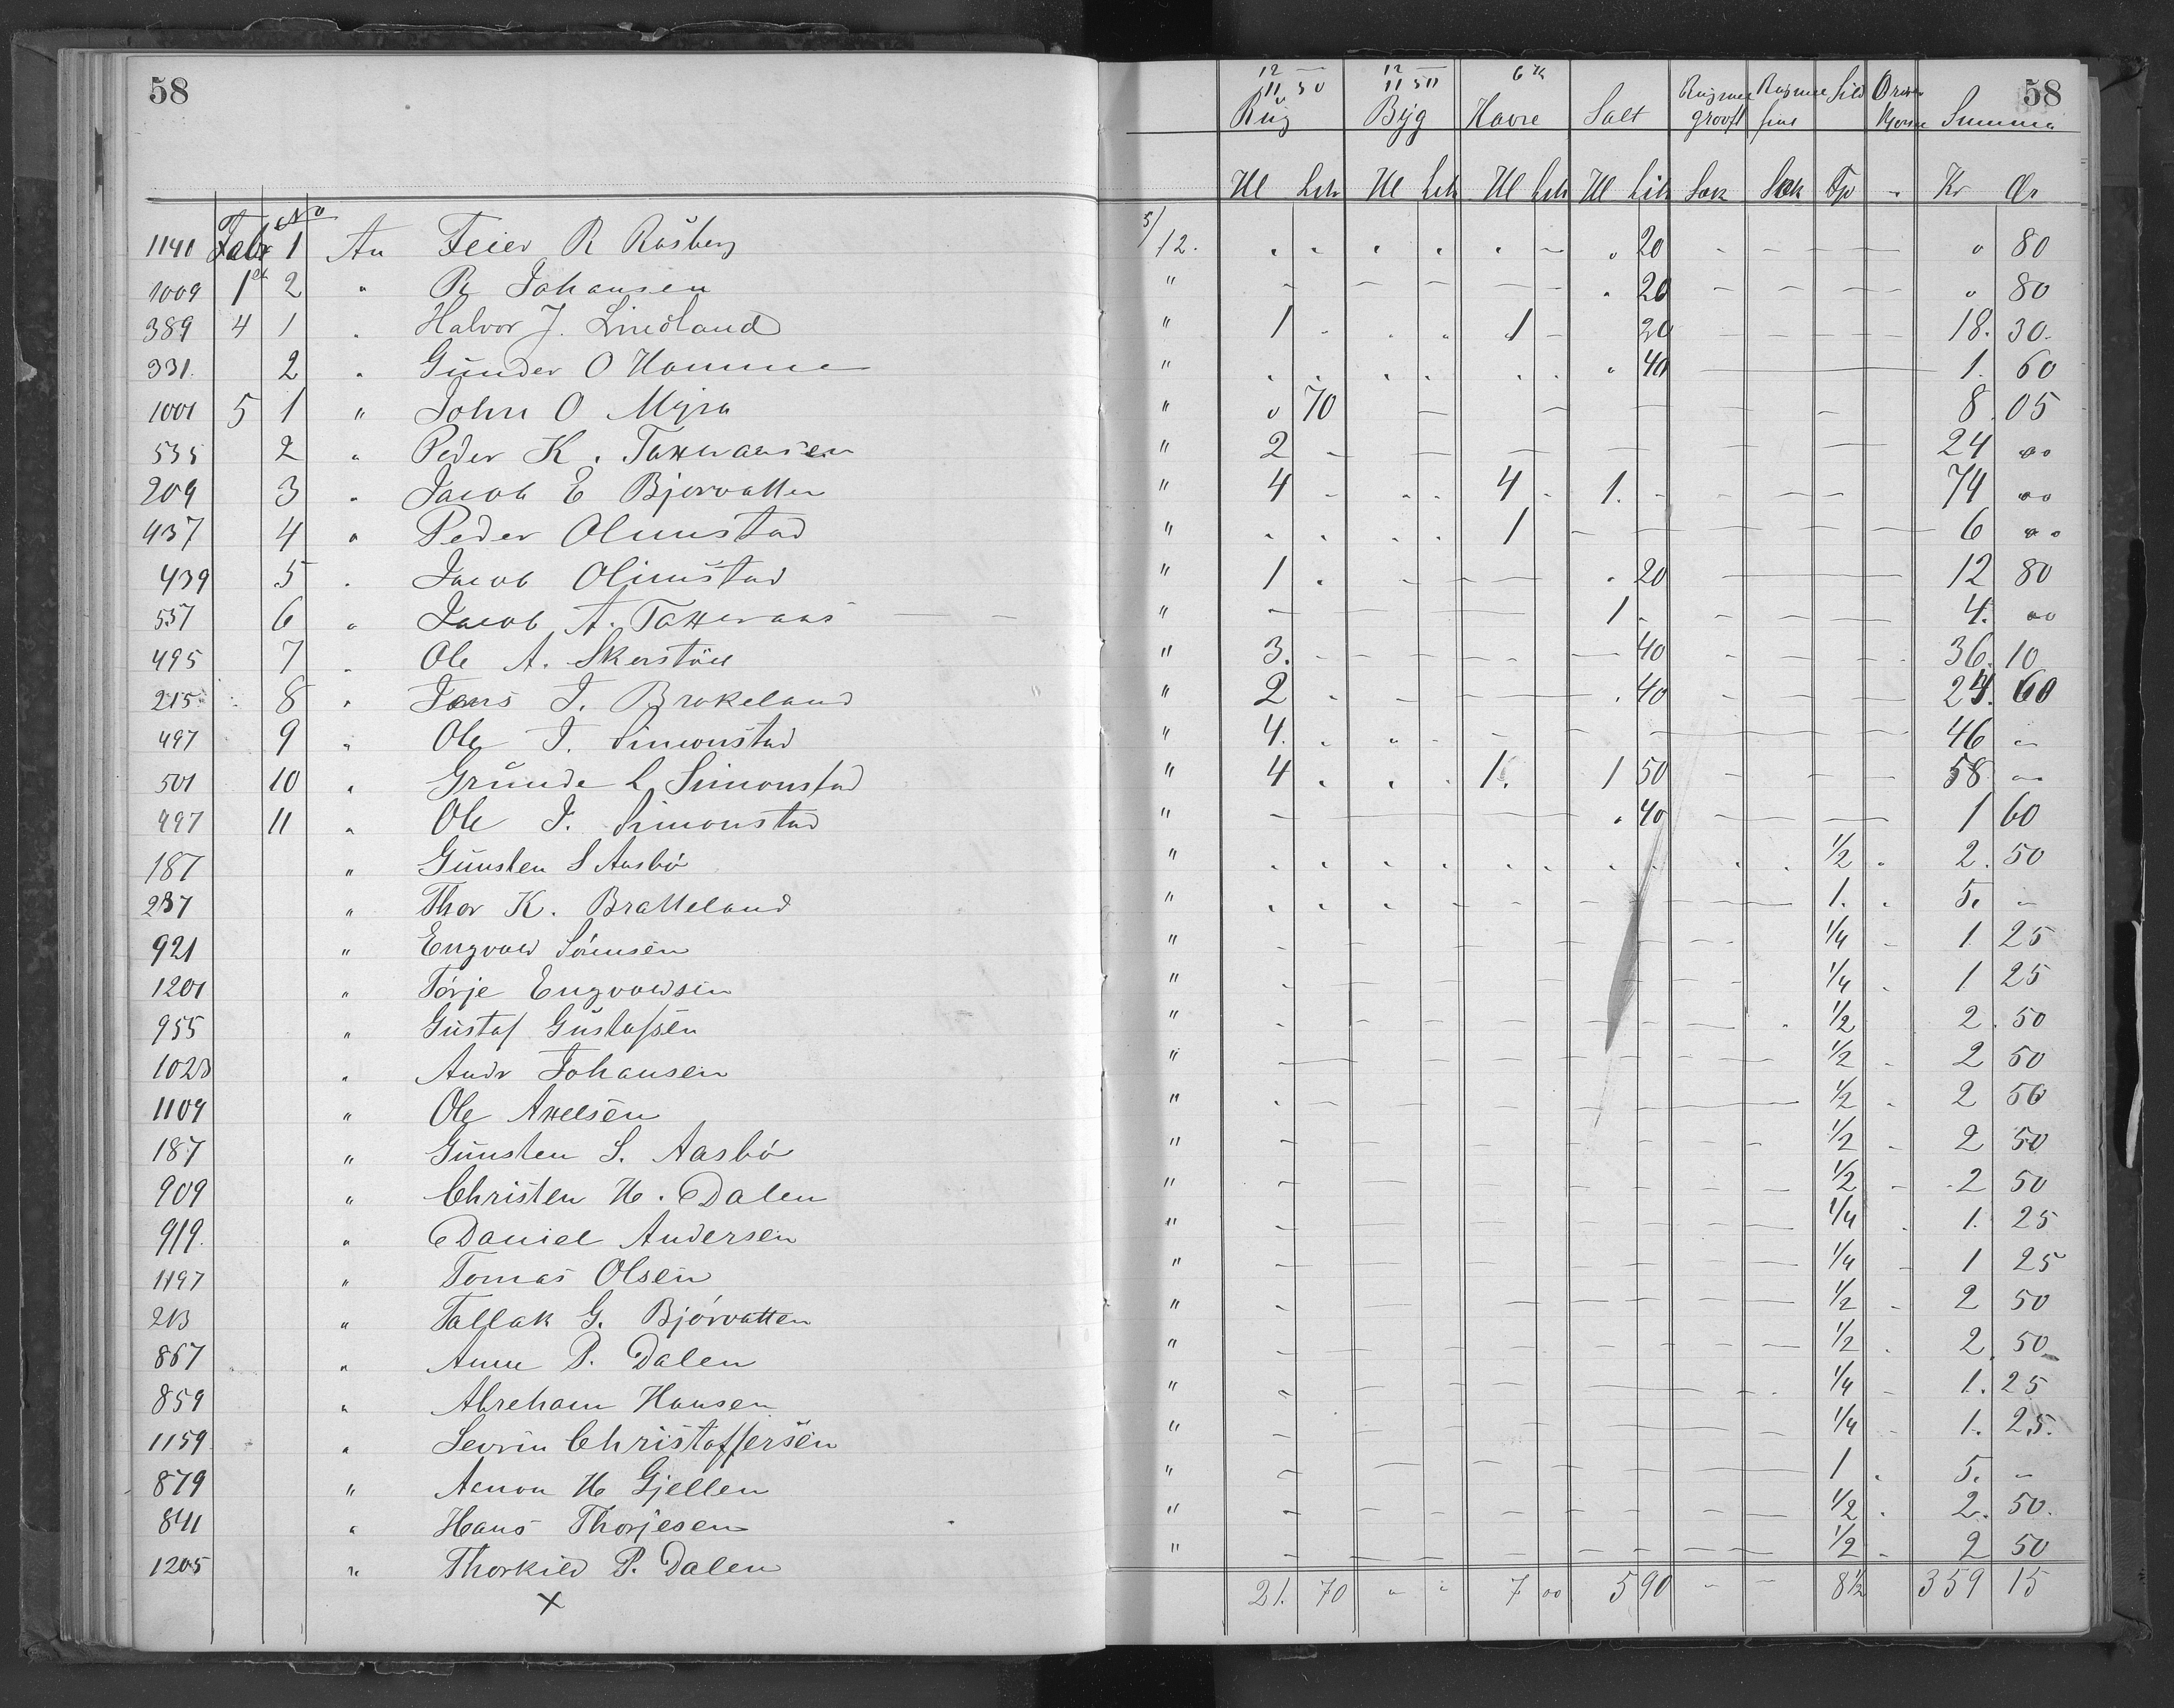 58
12 — 12 — 6 Kr 58
11 50 11 50
Rug Byg Havre Salt Rugmel groft Rugmel fint Sild Summa
Hl Litr Hl Litr Hl Litr Hl Litr Sæk Sæk Tp - Kr Ør
No
1141 Febr 1 An Feier R Rosberg 5/12. " " " " " - " 20 - - - - " 80
1009 1st 2 " R Johansen " - - - - - " 20 - - - - " 80
389 4 1 " Halvor J. Lindland " 1 - " " 1 - 20 - - - - 18. 30.
331. 2 " Gunder O Homme " " " " " " " " 40 — 1. 60
1001 5 1 " John O Myra " " 70 - - - - - 8. 05
535 2 " Peder K. Taxeraasen " 2 - - - - - - - 24 00
209 3 " Jacob E Bjorvatten " 4 - " " 4 - 1. - - - - 74 00
437 4 " Peder Olimstad " " " " " 1 - - - - - - 6 00
439 5 " Jacob Olimstad " 1 " - - - " 20 — 12 80
537 6 " Jacob A. Taxeraas — - " - - - - 1 - - - - 4. 00
495 7 " Ole A. Skerstøll " 3. - - - - - - 40 - - - - 36. 10
215 8 " Jens J. Brokeland " 2 " - - " 40 - - - 24. 60
497 9 " Ole J. Simonstad " 4. " " - - - - - - - 46 "
501 10 " Grunde L Simonstad " 4 " " " 1. 1 50 - - - 58 "
497 11 " Ole J. Simonstad " - - - " 40 - - - 1 60
187 " Gunsten S Aasbø " " " " " " " " " " " 1/2 " 2. 50
237 " Thor K. Bratteland " " " " - - - - - - - 1. " 5. "
921 " Engvald Sørensen " - - - - - - - - 1/4 - 1. 25
1201 " Tørje Engvaldsen " - - - - - - - - 1/4 " 1 25
955 " Gustaf Gustafsen " - - - - - - - - " 1/2 2. 50
1023 " Andr Johansen " - - - - - - - - 1/2 " 2 50
1109 " Ole Axelsen " " - - - - - - - - 1/2 " 2 50
187 " Gunsten S. Aasbø " - - - - - - - - 1/2 - 2 50
909 " Christen H. Dalen " - - - - - - - - 1/2 - 2 50
919. " Daniel Andersen " - - - - - - - - 1/4 " 1. 25
1197 " Tomas Olsen " - - - - - - - - 1/4 - 1 25
213 " Tallak G. Bjørvatten " - - - - - - - 1/2 - 2 50
867 " Anne P. Dalen " - - - - - - - - 1/2 " 2. 50
859 " Abreham Hansen " - - - - - - - " 1/4 - 1. 25
1159 " Sevrin Christoffersen " - - - - - - - 1/4 - 1. 25.
879 " Aanon H Gjellen " - - - - - - - 1 " 5. "
841 " Hans Thorjesen " - - - - - - - - 1/2 " 2. 50.
1205 " Thorkild P. Dalen " - - - - - - - - 1/2 - 2 50
X 21. 70 " " 7 00 5 90 - - 8 1/2 359 15